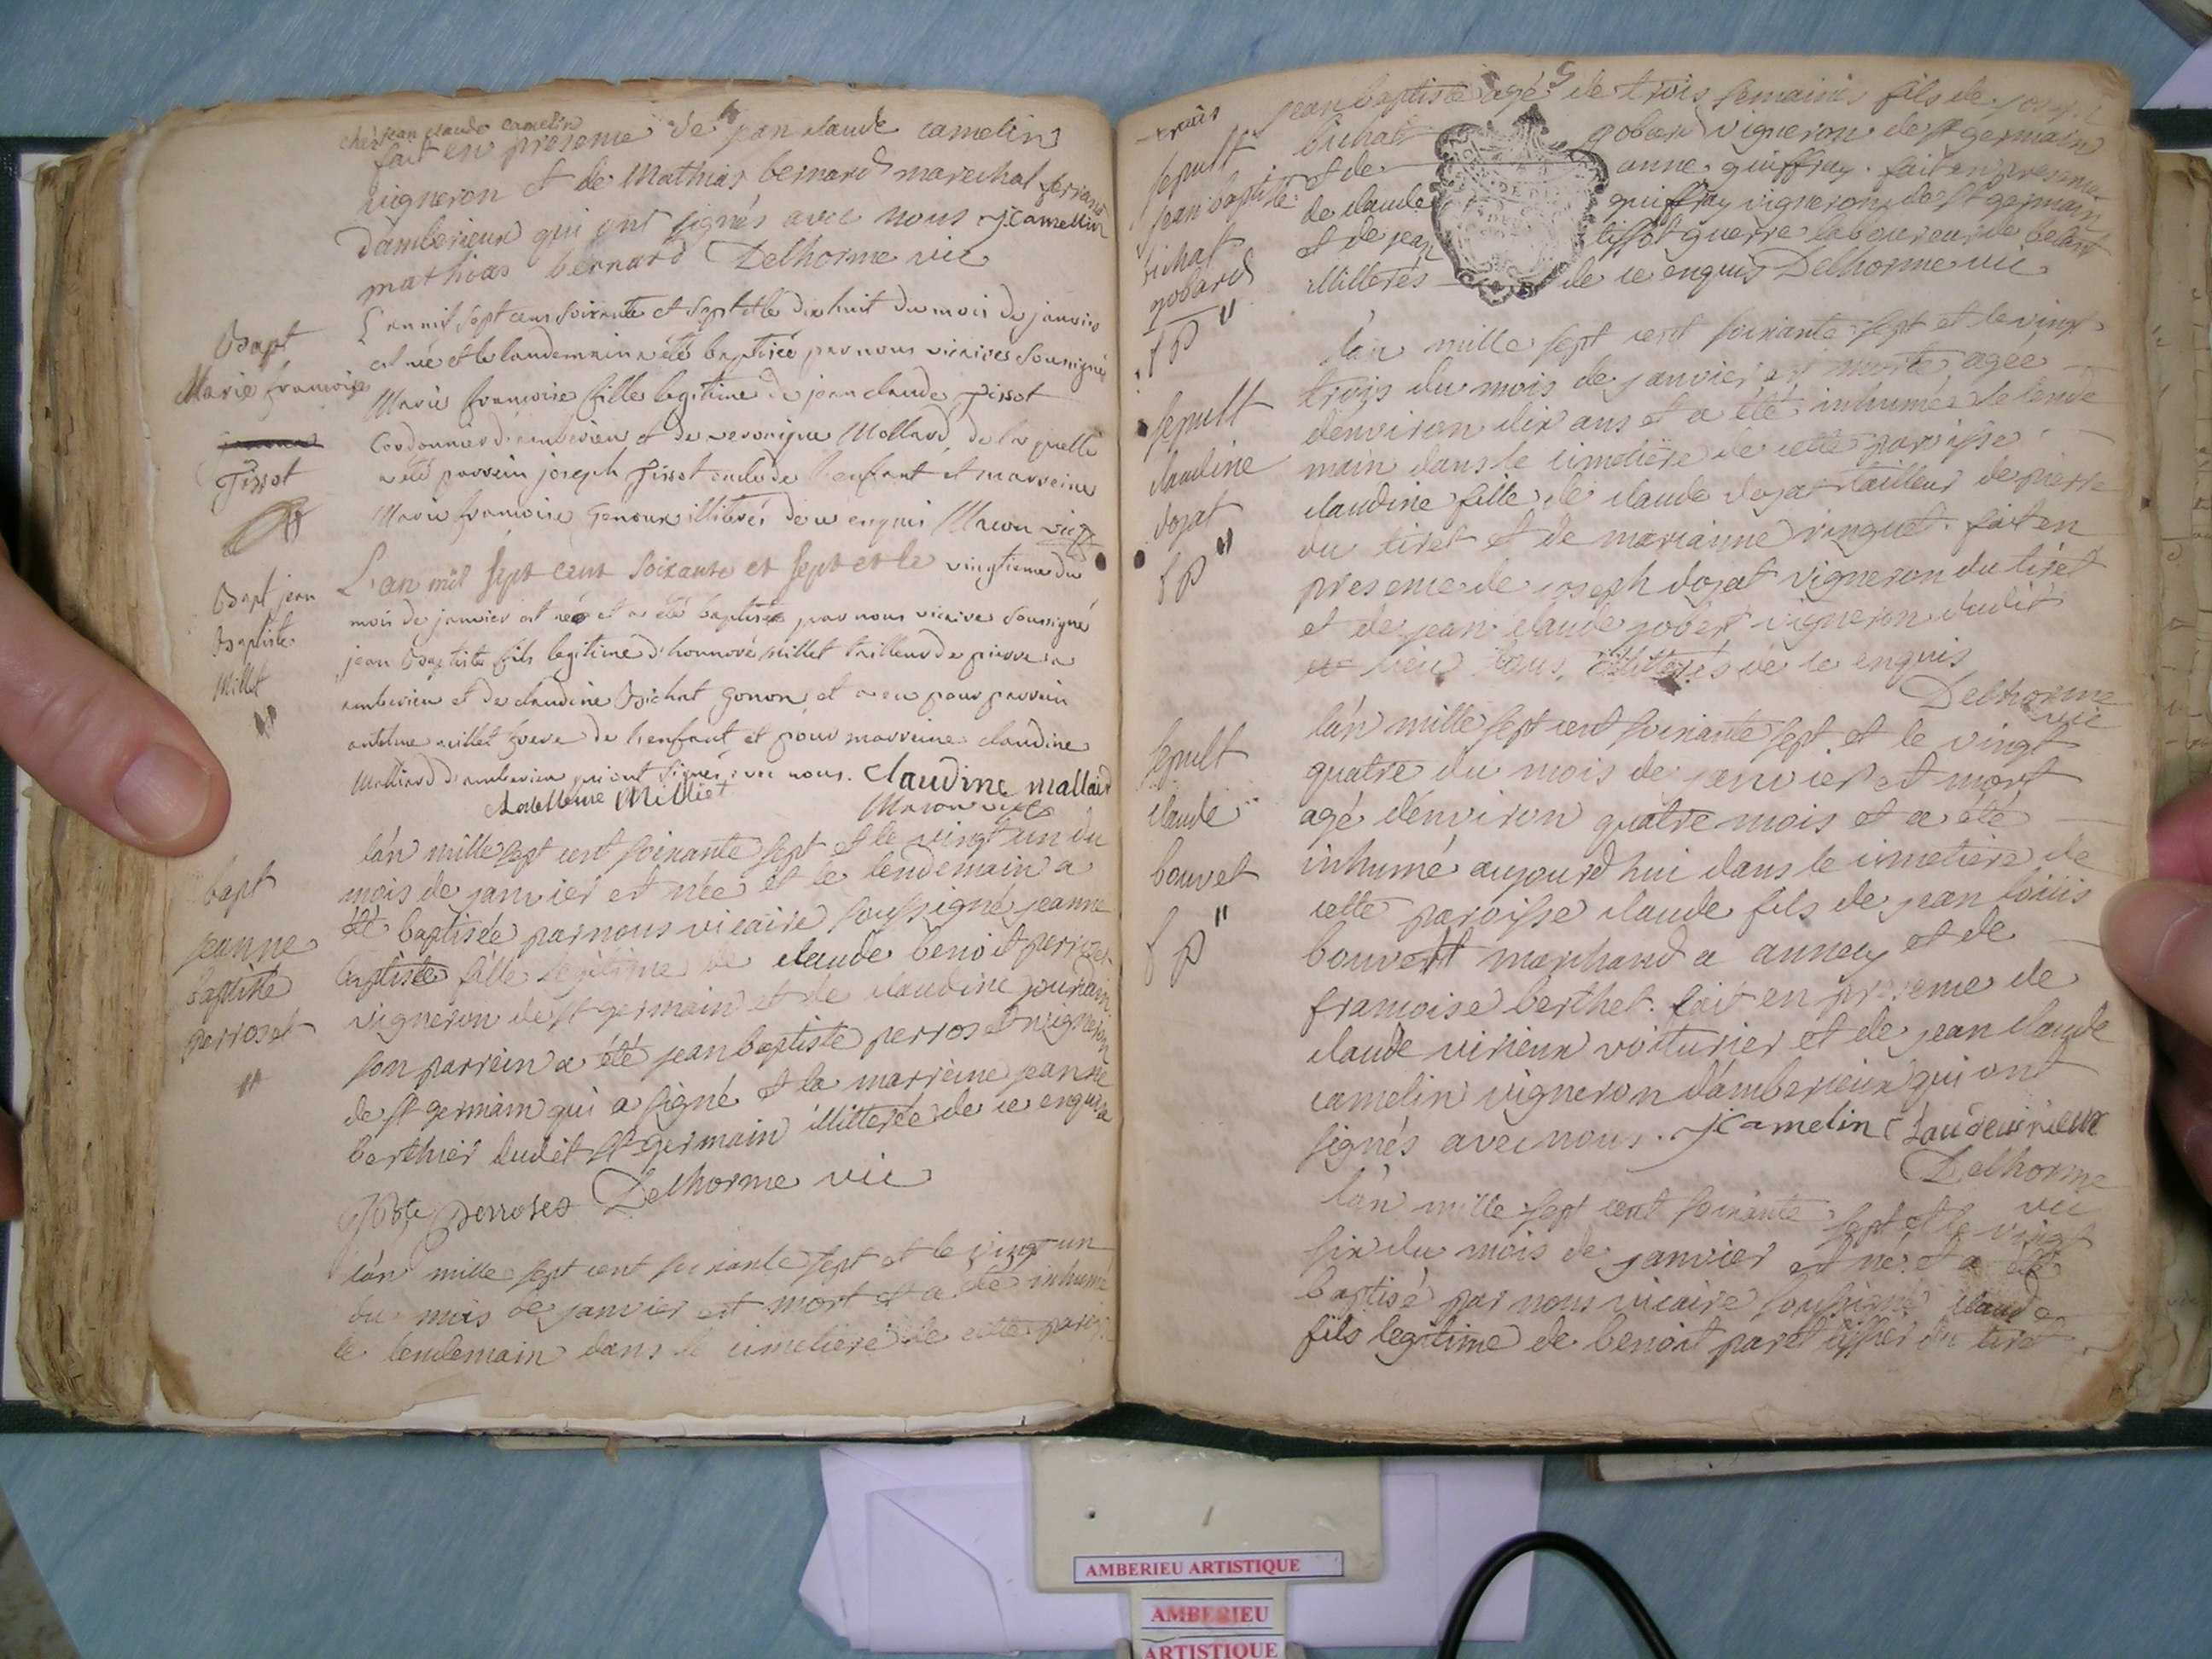 chés jean claude camelin
fait en presence de jean claude camelin
vigneron et de Mathias bernard marechal ferrant
d'amberieux qui ont signés avec nous J: Camellin
mathias bernard Delhorme vic
Bapt
Marie francoise
Tissot
L'an mil sept cens soixante et sept et le dix huit du mois de janvier
est née et le landemain a été baptisée par nous vicaires soussigné
Marie francoise fille legitime de jean claude Tissot
Cordonnier d'amberieu et de veronique Mollard de laquelle
a été parrein joseph Tissot oncle de l'enfant et marreine
Marie francoise Genoux illiterés de ce enquis Maron vic
Bapt jean
Baptiste
Millet
L'an mil sept cent soixante et sept et le vingtieme du
mois de janvier est né et a été baptisé par nous vicaire soussigné
jean Baptiste fils legitime d'honnoré Millet tailleur de pierre a
amberieu et de claudine Bichat gonon et a eu pour parrein
antelme millet frere de l'enfant et pour marreine claudine
Malliard d'amberieu qui ont signés avec nous. Claudine mallard
Antelleme Milliet Maron vic
bapt
jeanne
baptiste
perroset
l'an mille sept cent soixante sept et le vingt un du
mois de janvier est née et le lendemain a
été baptisée par nous vicaire soussigné jeanne
baptiste fille legitime de claude benoit perroset
vigneron de st germain et de claudine jourdain
son parrein a été jean baptiste perroset vigneron
de st germain qui a signé et la marreine jeanne
berthier dudit st germain illitterée de ce enquise
JBte perroset Delhorme vic
l'an mille sept cent soixante sept et le vingt un
du mois de janvier est mort et a été inhumé
le lendemain dans le cimetiere de cette parois
sepult
jean baptiste
bichat
gobard
f p
jean baptiste agé de trois semaines fils de joseph
bichat gobard vigneron de st germain
et de anne guiffray. fait en presence
de claude guiffray vigneron de st germain
et de jean tissot guerre laboureur de
illiterés de ce enquis Delhorme vic
sepult
claudine
dojat
f p
l'an mille sept cent soixante sept et le vingt
trois du mois de janvier est morte agée
d'environ dix ans et a été inhumée le lende
main dans le cimetière de cette paroisse
claudine fille de claude dojat tailleur de pierre
du tiret et de marianne vinguet. fait en
presence de joseph dojat vigneron du tiret
et de jean claude gobet vigneron dudit
lieu tous illitterés de ce enquis
Delhorme
vic
sepult
claude
bouvet
f p
l'an mille sept cent soixante sept et le vingt
quatre du mois de janvier est mort
agé d'environ quatre mois et a été
inhumé aujourd'hui dans le cimetiere de
cette paroisse claude fils de jean louis
bouvet marchand a annecy et de
francoise berthet. fait en presence de
claude virieux voiturier et de jean claude
camelin vigneron d'amberieux qui ont
signés avec nous. J: Camelin Claude virieux
Delhorme
vic
l'an mille sept cent soixante sept et le vingt
six du mois de janvier est né et a été
baptisé par nous vicaire soussigné claude
fils legitime de benoit paret tissier du tiret
AMBERIEU ARTISTIQUE
AMBERIEU
ARTISTIQUE